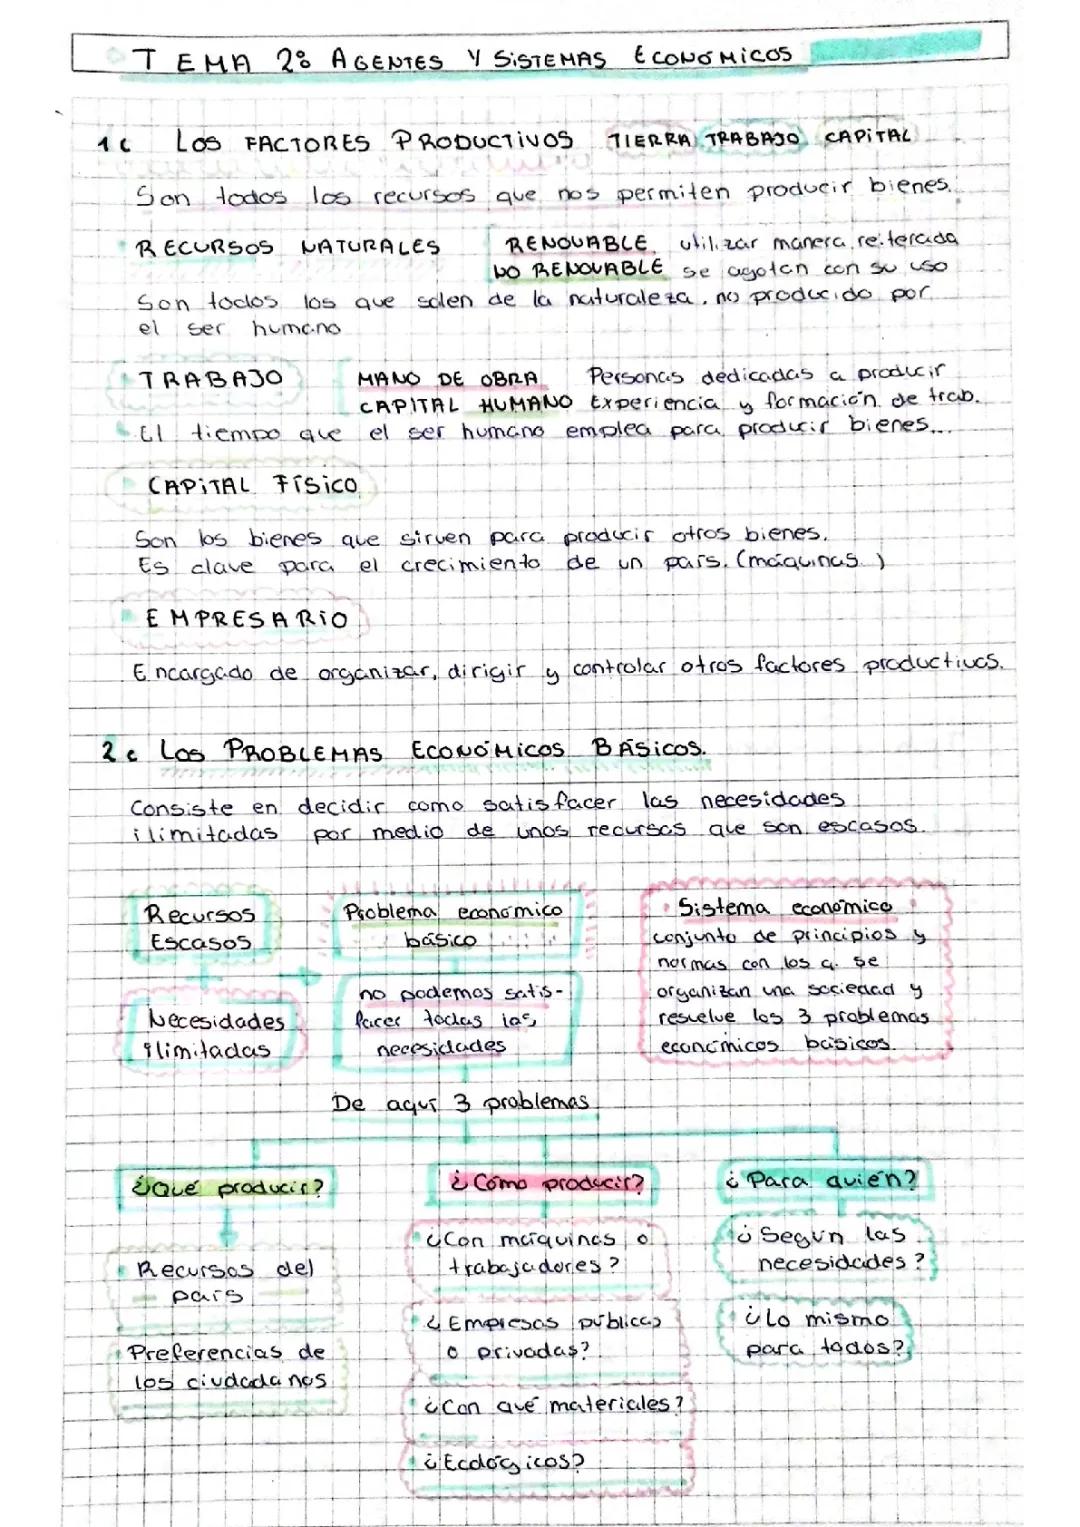 TEMA 2: AGENTES Y SISTEMAS ECONÓMICOS
1. LOS FACTORES PRODUCTIVOS TIERRA TRABAJO CAPITAL
Son todos los recursos que nos permiten producir bienes.
RECURSOS NATURALES
RENOVABLE utilizar manera reiterada
NO RENOVABLE se agotan con su uso
Son todos los que salen de la naturaleza, no producido por
el ser humano
TRABAJO
MANO DE OBRA Personas dedicadas a producir
CAPITAL HUMANO Experiencia y formación de trab.
El tiempo que el ser humano emplea para producir bienes...
CAPITAL FÍSICO
Son los bienes que sirven para producir otros bienes.
Es clave para el crecimiento de un país. (máquinas.)
EMPRESARIO
Encargado de organizar, dirigir y controlar otros factores productivos.
2. LOS PROBLEMAS ECONÓMICOS BÁSICOS.
Consiste en decidir como satisfacer las necesidades
ilimitadas por medio de unos recursos que son escasos.
Recursos
Escasos
Necesidades
ilimitadas
Problema económico
básico
no podemos satis-
facer todas las
necesidades
Sistema económico
conjunto de principios y
normas con los q. se
organizan una sociedad y
resuelve los 3 problemas
económicos básicos.
De aquí 3 problemas
¿Qué producir?
Recursos del
país
Preferencias de
los ciudadanos
¿Cómo producir?
¿Con máquinas o
trabajadores?
¿Empresas públicas
o privadas?
¿Con qué materiales?
¿Ecológicos?
¿Para quién?
¿Según las
necesidades?
¿Lo mismo
para todos?